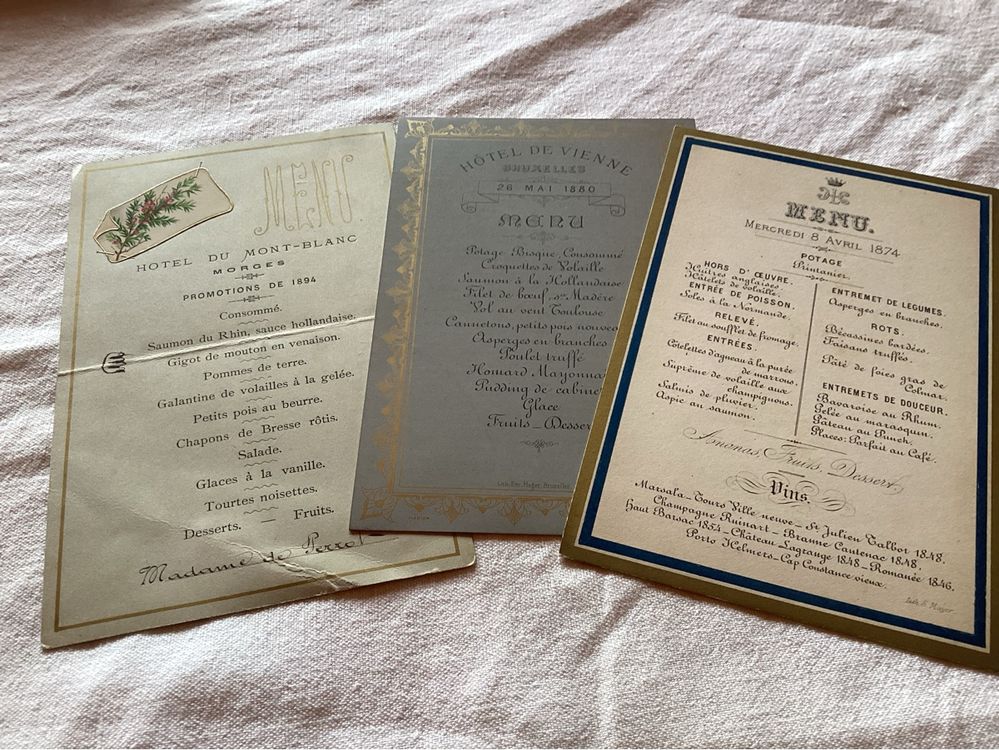 MENU
HÔTEL DU MONT-BLANC
MORGES
PROMOTIONS DE 1894
Consommé.
Saumon du Rhin, sauce hollandaise.
Gigot de mouton en venaison.
Pommes de terre.
Galantine de volailles à la gelée.
Petits pois au beurre.
Chapons de Bresse rôtis.
Salade.
Glaces à la vanille.
Tourtes noisettes.
Desserts. — Fruits.
Madame de
HÔTEL DE VIENNE
BRUXELLES
26 MAI 1880
MENU
Potage Bisque, Consommé
Croquettes de Volaille
Saumon à la Hollandaise
Filet de bœuf, sce Madère
Vol au vent Toulouse
Cannetons, petits pois nouveo
Asperges en branches
Poulet truffé
Homard Mayonna
Pudding de cabine
Glace
Fruits_Desser
MENU.
MERCREDI 8 AVRIL 1874
POTAGE
Printanier.
HORS D'ŒUVRE.
Huîtres anglaises.
Hâtelets de volaille.
ENTRÉE DE POISSON.
Soles à la Normande.
RELEVÉ.
Filet au soufflet de fromage.
ENTRÉES.
Côtelettes d'agneau à la purée
de marrons.
Suprême de volaille aux
champignons.
Salmis de pluvier.
Aspic au saumon.
ENTREMET DE LEGUMES.
Asperges en branches.
ROTS.
Bécassines bardées.
Faisans truffés.
Pâté de foies gras de
Colmar.
ENTREMETS DE DOUCEUR.
Bavaroise au Rhum.
Gelée au marasquin.
Gâteau au Punch.
Glaces: Parfait au Café.
Ananas, Fruits, Dessert
Vins.
Marsala_Tours Ville neuve_St Julien Talbot 1848.
Champagne Ruinart_Branne Cantenac 1848.
Haut Barsac 1854_Château Lagrange 1848_Romanée 1846.
Porto Helmers_Cap Constance vieux.